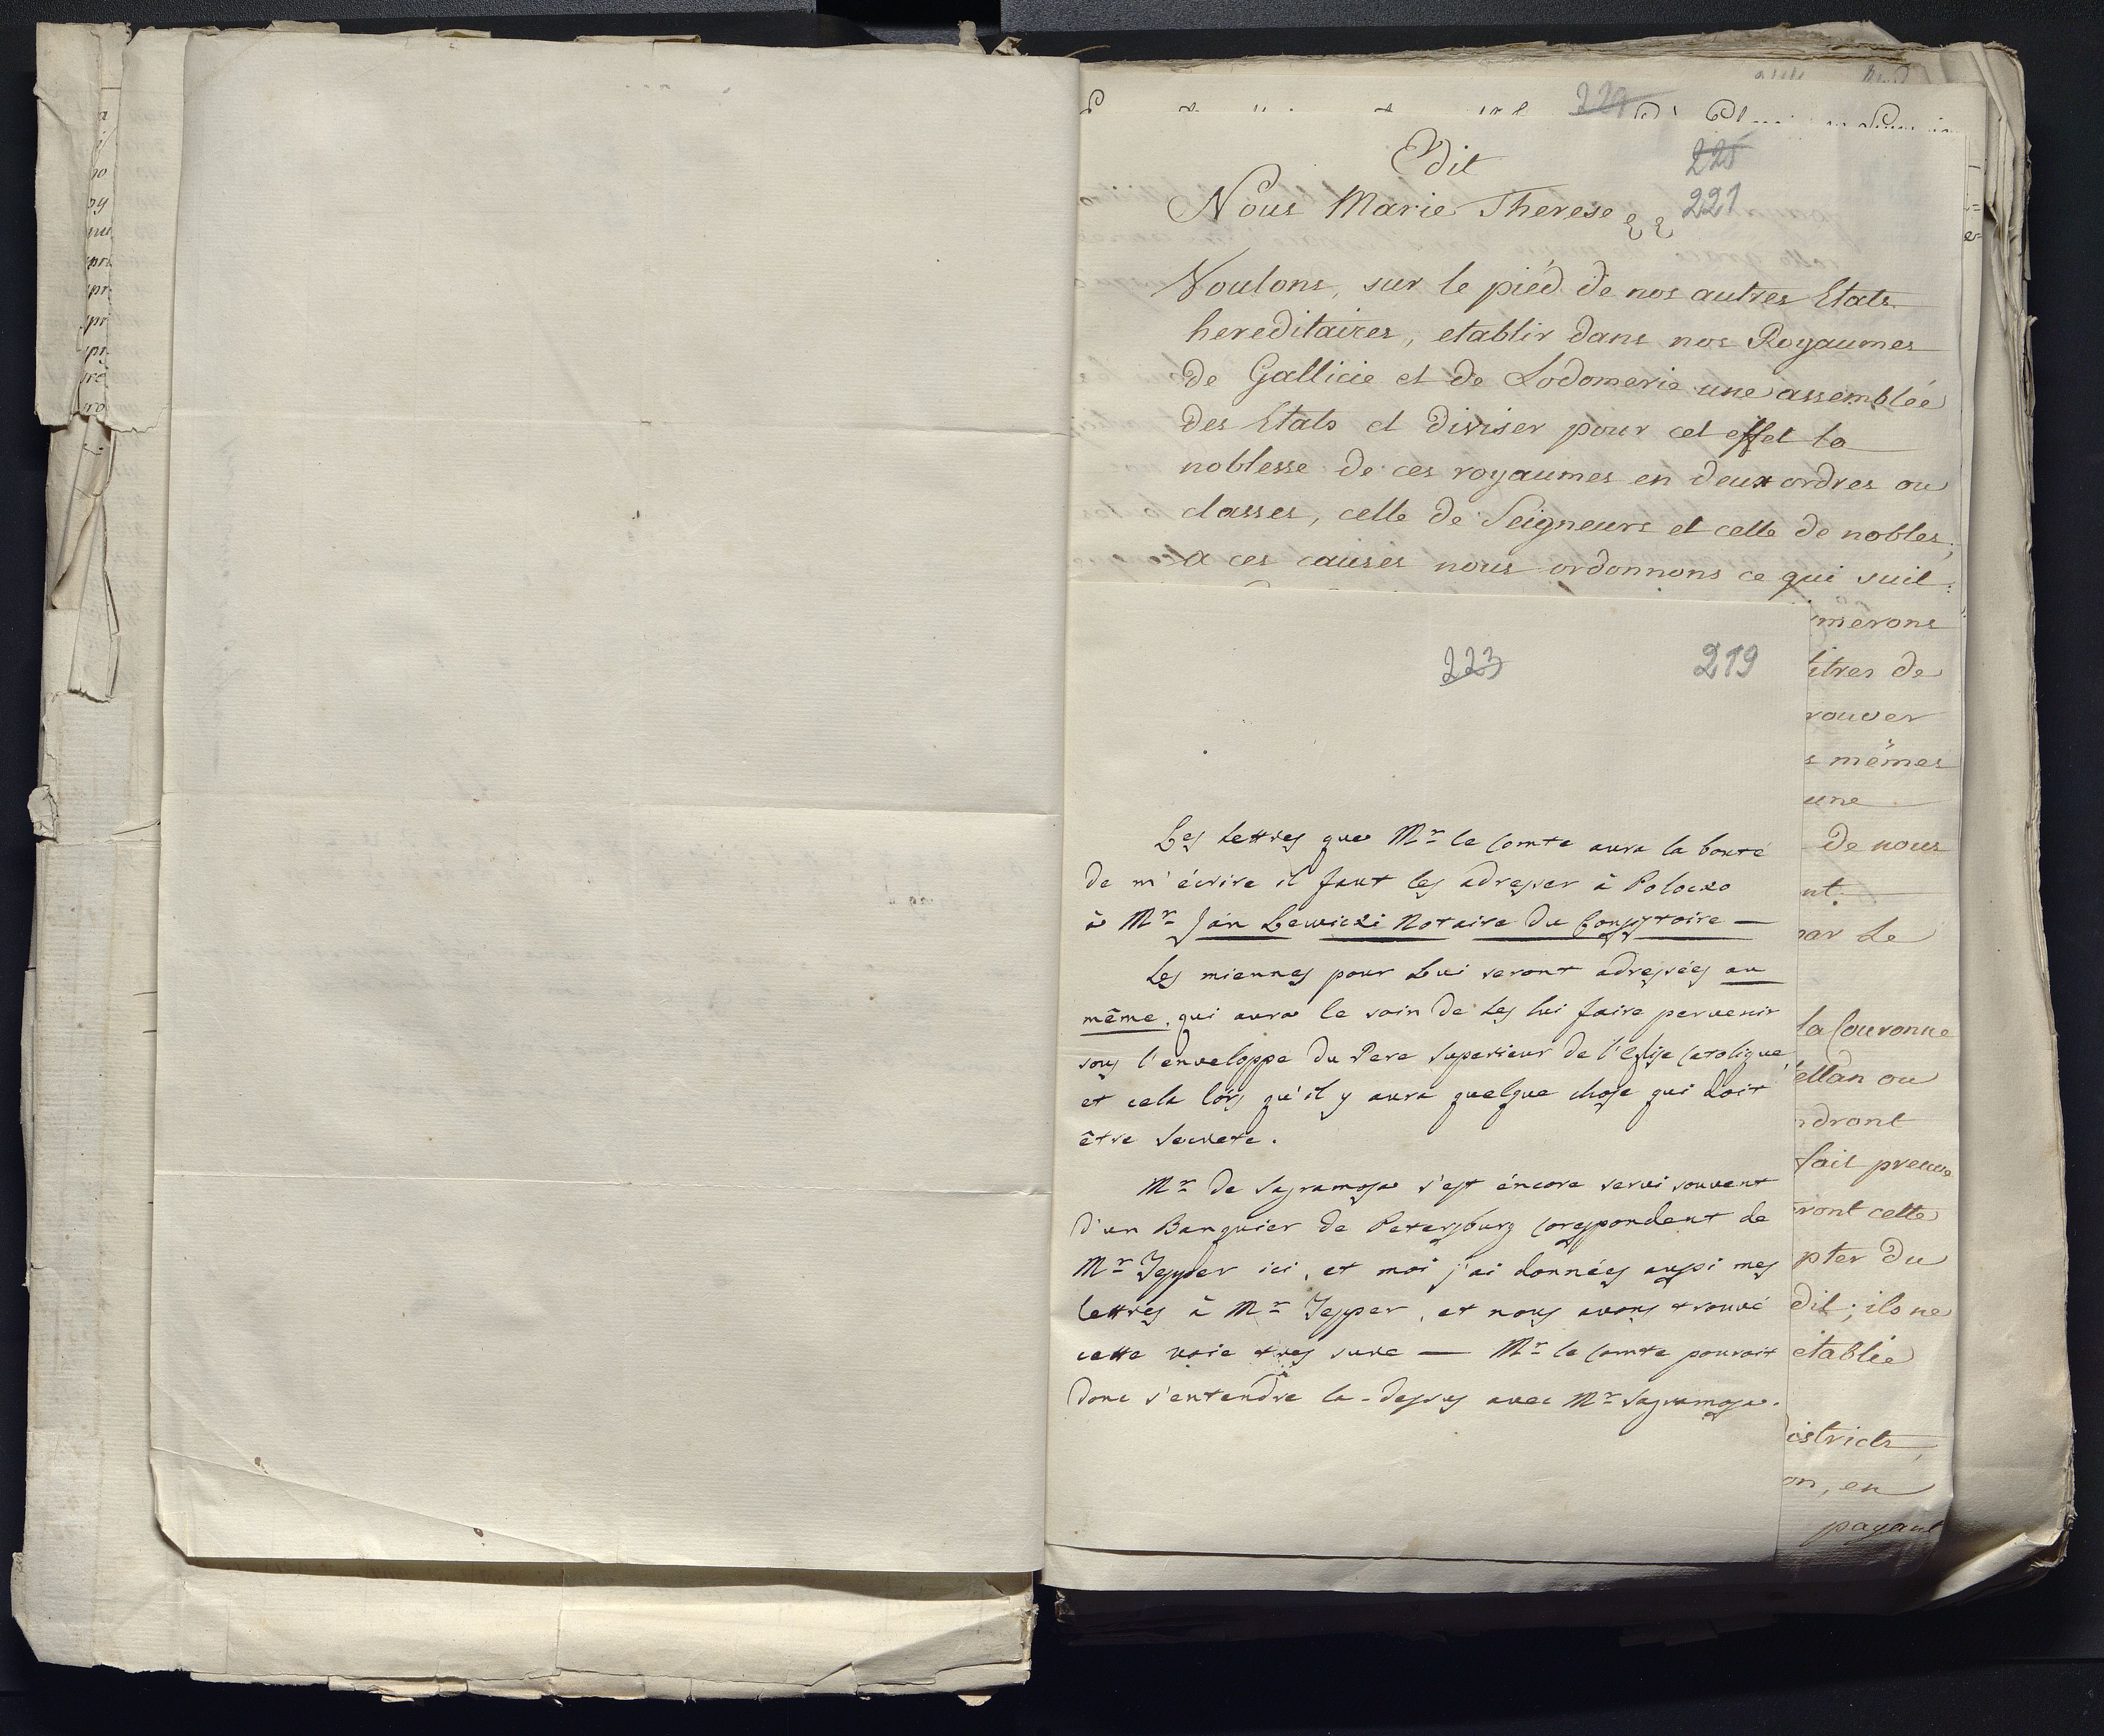 229
Edit
225
Nous Marie Therese
221
Voulons, sur le piéd de nos autres Etats
hereditaires, etablir dans nos Royaumes
de Gallicie et de Lodomerie une assemblée
des Etats et diviser pour cet effet la
noblesse de ces royaumes en deux ordres ou
classes, celle de Seigneurs et celle de nobles;
a ces causes nous ordonnons ce qui suit:
223
219
Les Lettres que Mr le Comte aura la bonté
de m'écrire il faut les adresser à Polocko
à Mr Ján Lewicki Notaire du Consystoire —
Les miennes pour Lui seront adressées au
même, qui aura le soin de Les lui faire pervenir
sous l'enveloppe du Pere Superieur de l'Eglise Catolique,
et cela lors qu'il y aura quelque chose qui doit
être Secrete.
Mr de Sagramoso s'est éncore servi souvent
d'un Banquier de Petersburg Corespondent de
Mr Tepper ici, et moi j'ai données aussi mes
lettres à Mr Tepper, et nous avons trouvé
cette voie tres sure — Mr le Comte pouroit
donc s'entendre la-dessus avec Mr Sagramoso.
merons
itres de
rouver
s mêmes
une
de nous
nt.
par Le
la Couronne
ellan ou
ndront
fait preuve
ront cette
pter du
dit; ils ne
etablie
istricts,
on, en
payant